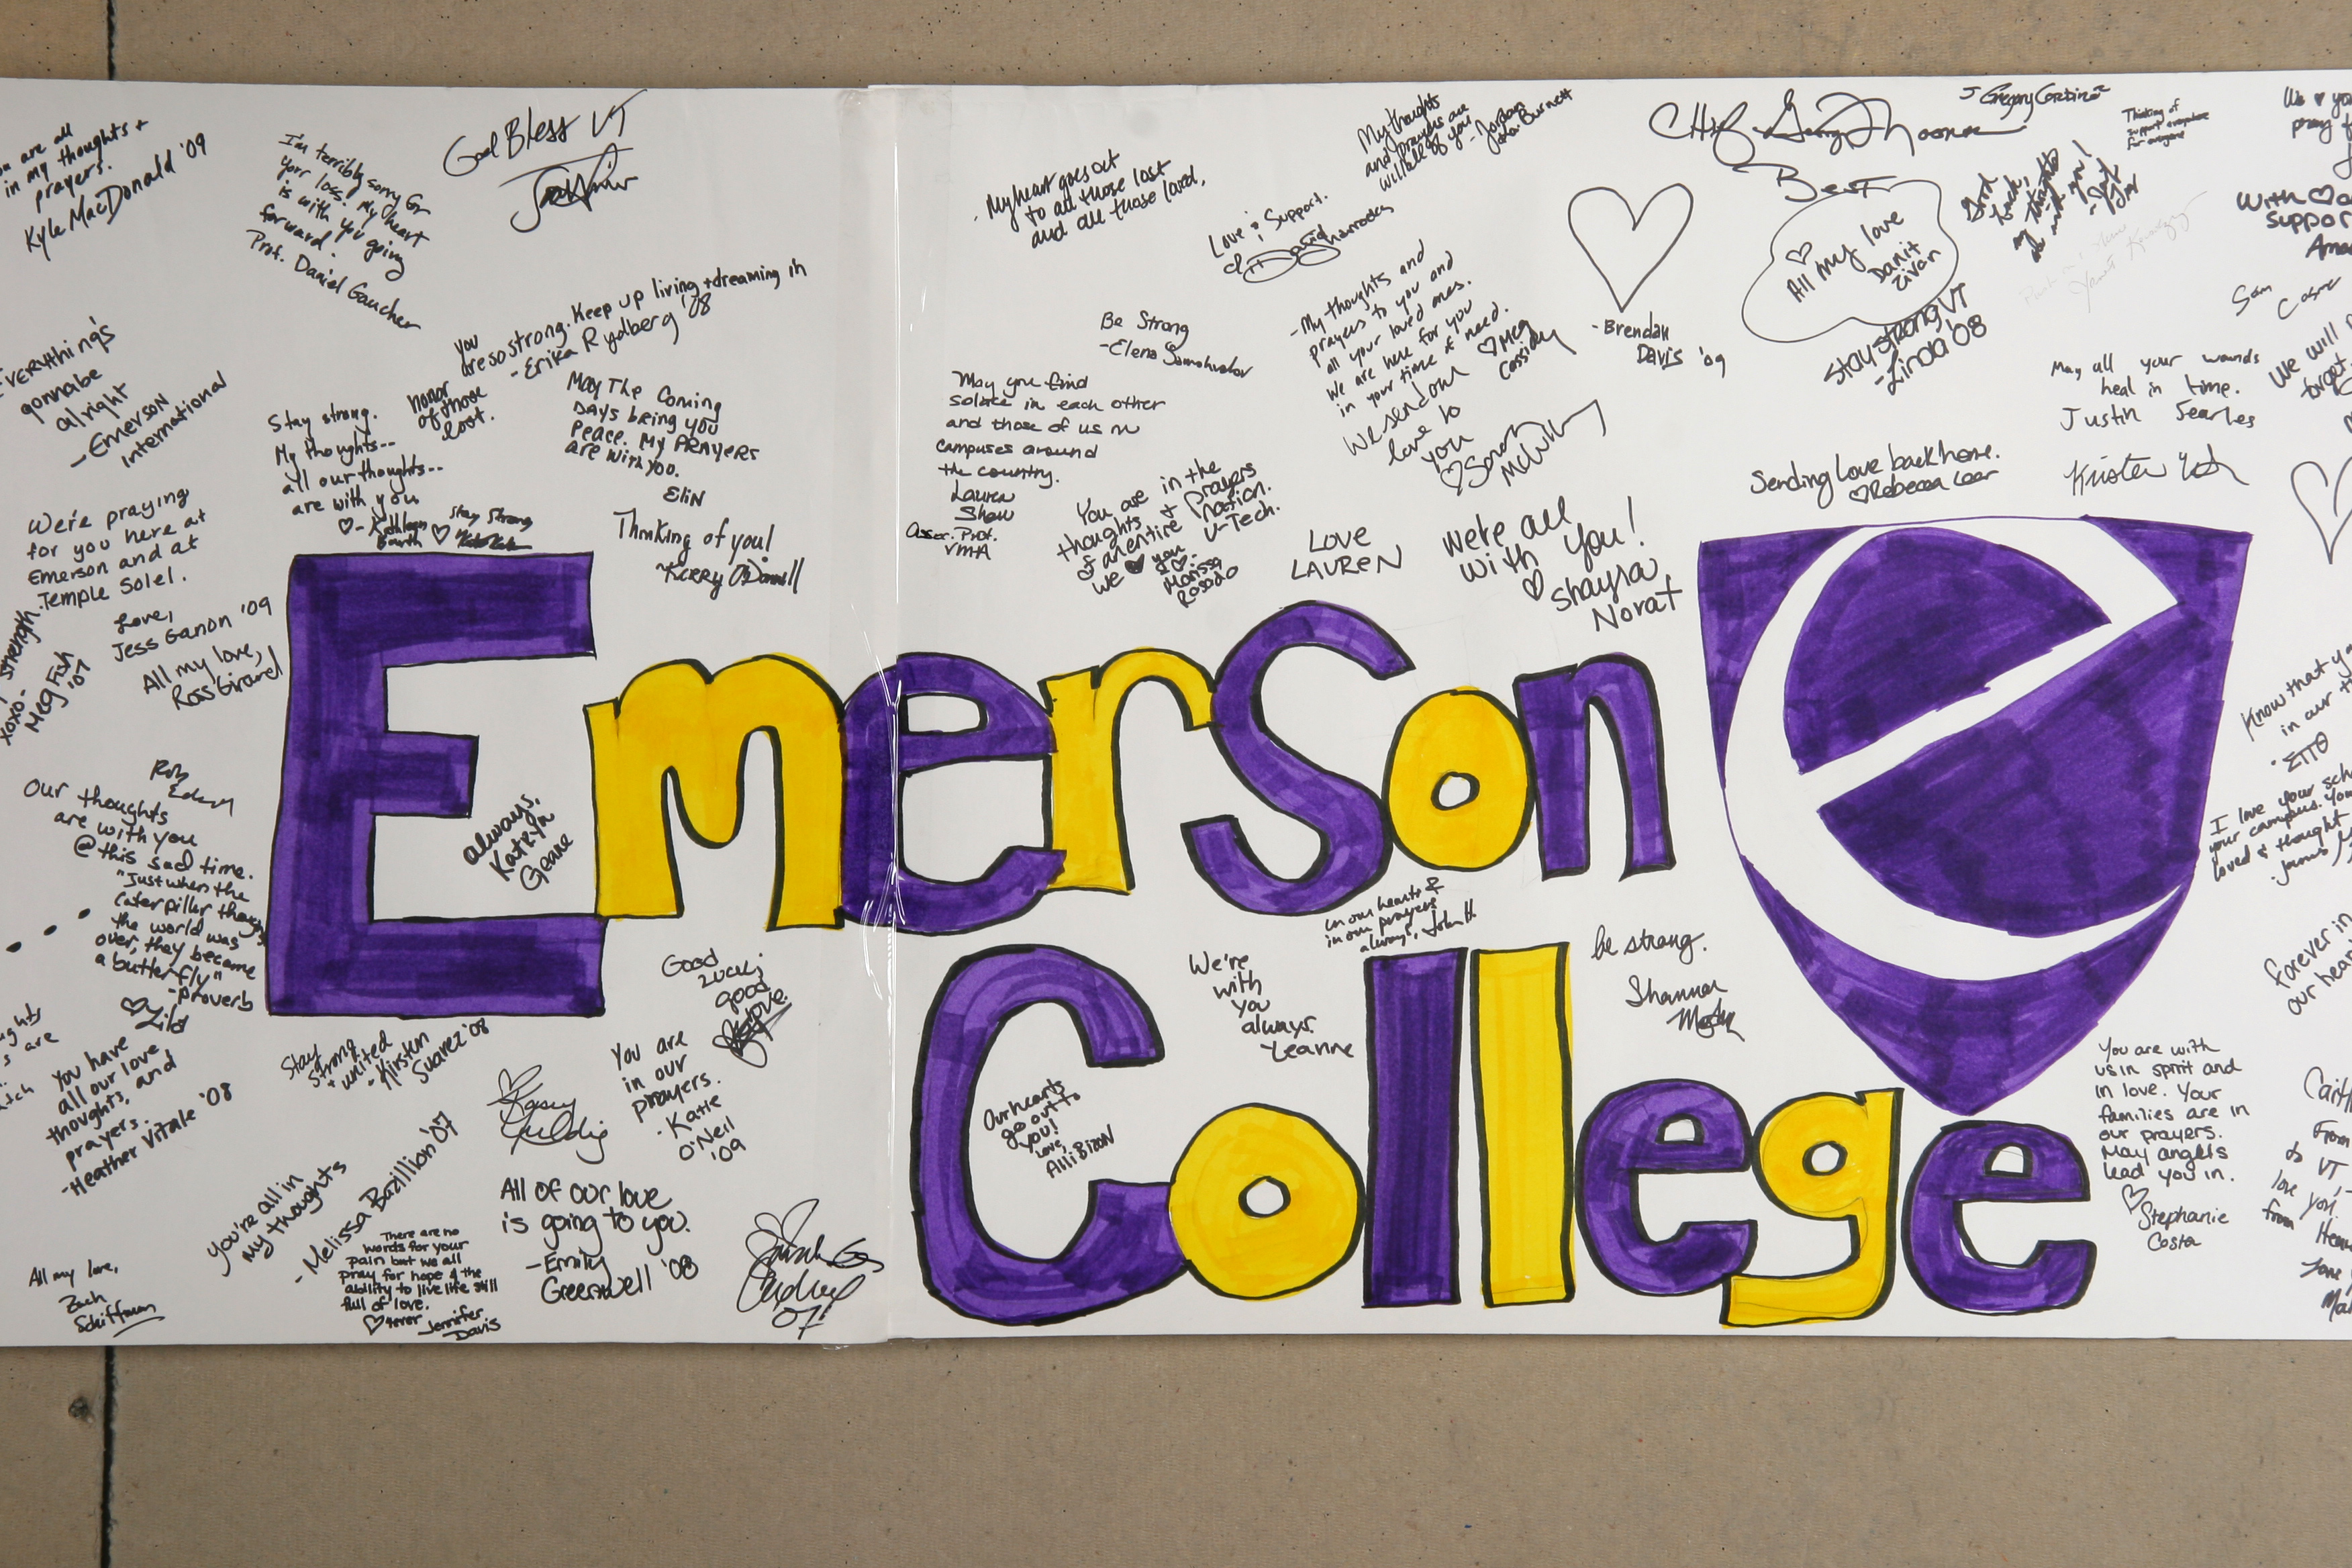 are all
in my thoughts +
prayers.
Kyle MacDonald '09
I'm terribly sorry for
your loss. My heart
is with you going
forward.
Prof. Daniel Gaucher
God Bless VT
you
are so strong. Keep up living + dreaming in
honor
of those
lost.
- Erika Rydberg '08
Everything's
gonna be
alright
- Emerson
International
Stay strong.
My thoughts--
all our thoughts--
are with you
♡ - Kathleen
♡ Stay Strong
May The Coming
Days bring you
Peace. My Prayers
are with you.
Elin
Thinking of you!
~Kerry O'Donnell
We're praying
for you here at
Emerson and at
Temple Solel.
Love,
Jess Ganon '09
strength.
xoxo.
Meg Fish
'07
All my love,
Ross Girard
Rob
Our thoughts
are with you
@ this sad time.
"Just when the
caterpillar thought
the world was
over, they became
a butterfly"
- Proverb
♡ Lila
You have
all our love,
thoughts, and
prayers.
- Heather Vitale '08
All my love,
Zach
Schiffman
always,
Katkya
Geane
Stay
strong
+ united
- Kirsten
Suarez '08
You're all in
my thoughts
- Melissa Bazillion '07
There are no
words for your
pain but we all
pray for hope & the
ability to live life still
full of love.
♡ 4ever Jennifer
Davis
Good
luck;
good
You are
in our
prayers.
- Katie
O'Neil
'09
All of our love
is going to you.
- Emily
Greenwell '08
Sarah
07!
Emerson
College
- My heart goes out
to all those lost
and all those loved.
Love & Support.
David
My thoughts
and prayers are
with all of you
- Jordan
Burnett
Be Strong
- Elena
May you find
solace in each other
and those of us in
campuses around
the country.
Lauren
Shaw
Assoc. Prof.
VMA
- My thoughts and
prayers to you and
all your loved ones.
We are here for you
in your time of need.
♡ Meg
Cassidy
We send our
love to
you
♡ Sarah
You are in the
thoughts & prayers
of an entire nation.
We ♥ you U-Tech.
♡.
Marissa
Rosado
LOVE
LAUREN
We're all
with you!
♡ Shayra
Norat
♡
- Brendan
Davis '09
Best
J Gregory
♡
All my love
Danit
Zivan
Stay strong VT
- Linda '08
Thinking of
for everyone
May all your wounds
heal in time.
Justin Searles
Sending love back home.
♡ Rebecca Lear
Kristen
With ♡
support
Sam
We will
forget
in our hearts &
in our prayers
always, John H.
We're
with
you
always.
- Leanne
be strong.
Shanna
Our hearts
go out to
you!
Love,
Alli Bizon
You are with
us in spirit and
in love. Your
families are in
our prayers.
May angels
lead you in.
♡
Stephanie
Costa
Know that
in our
I love your
your campus. You
loved & thought
Forever in
our
From
to VT
love you.
from